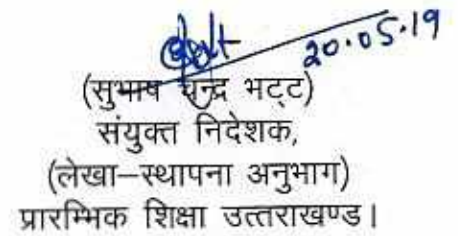 20.05.19
(सुभाष चन्द्र भट्ट)
संयुक्त निदेशक,
(लेखा–स्थापना अनुभाग)
प्रारम्भिक शिक्षा उत्तराखण्ड।